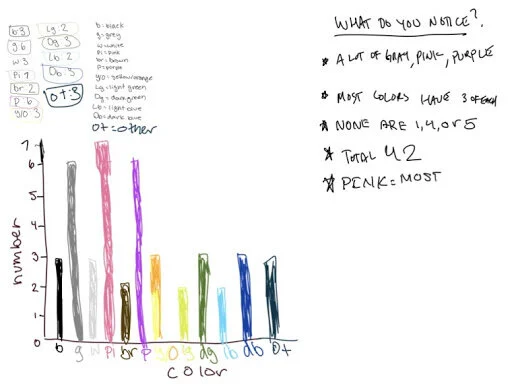 b 3
g 6
w 3
Pi 7
br 2
p 6
y/o 3
Lg: 2
Dg: 3
Lb 2
Db: 3
Ot: 3
b = black
g = grey
w = white
Pi = pink
br = brown
P = purple
y/o = yellow/orange
Lg = light green
Dg = dark green
Lb = light blue
Db = dark blue
Ot = other
WHAT DO YOU NOTICE?
* A LOT OF GRAY, PINK, PURPLE
* MOST COLORS HAVE 3 OF EACH
* NONE ARE 1, 4, OR 5
* TOTAL 42
* PINK = MOST
number
7
6
5
4
3
2
1
0
b g w Pi br P y O lg dg lb db Ot
COlOr